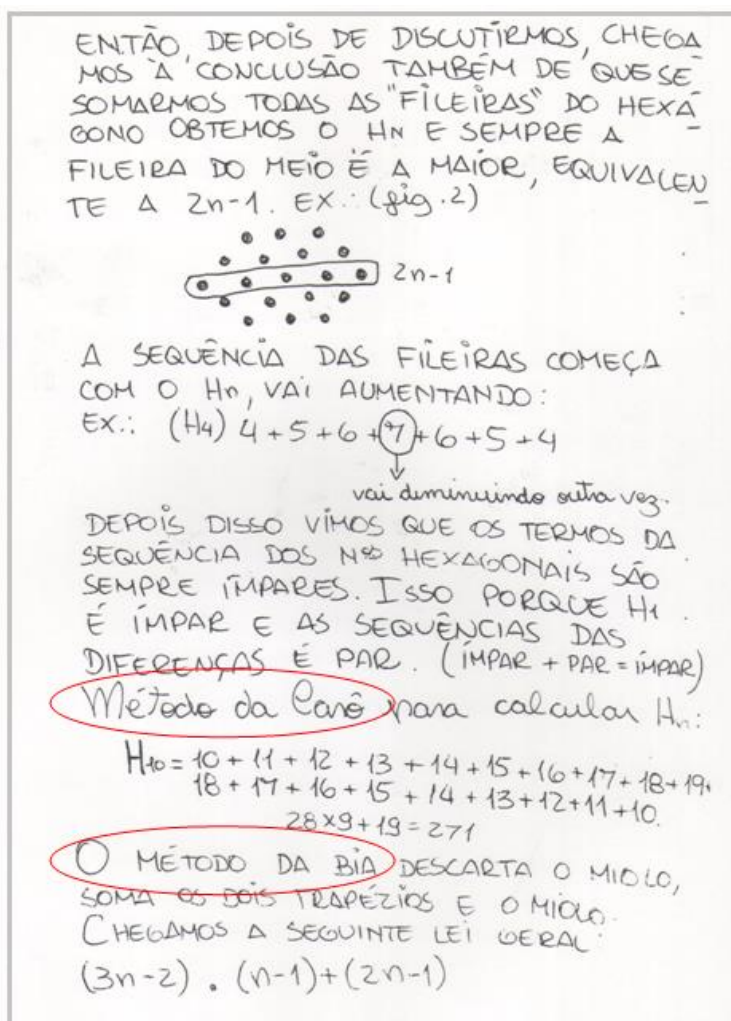 ENTÃO, DEPOIS DE DISCUTIRMOS, CHEGA
MOS À CONCLUSÃO TAMBÉM DE QUE SE
SOMARMOS TODAS AS "FILEIRAS" DO HEXÁ
GONO OBTEMOS O HN E SEMPRE A
FILEIRA DO MEIO É A MAIOR, EQUIVALEN
TE A 2n-1. EX.: (fig. 2)
2n-1
A SEQUÊNCIA DAS FILEIRAS COMEÇA
COM O Hn, VAI AUMENTANDO:
EX.: (H4) 4+5+6+7+6+5+4
vai diminuindo outra vez.
DEPOIS DISSO VIMOS QUE OS TERMOS DA
SEQUÊNCIA DOS Nos HEXAGONAIS SÃO
SEMPRE ÍMPARES. ISSO PORQUE H1
É ÍMPAR E AS SEQUÊNCIAS DAS
DIFERENÇAS É PAR. (ÍMPAR + PAR = ÍMPAR)
Método da Carô para calcular Hn:
H10 = 10+11+12+13+14+15+16+17+18+19+
18+17+16+15+14+13+12+11+10.
28×9+19=271
O MÉTODO DA BIA DESCARTA O MIOLO,
SOMA OS DOIS TRAPÉZIOS E O MIOLO.
CHEGAMOS A SEGUINTE LEI GERAL:
(3n-2).(n-1)+(2n-1)